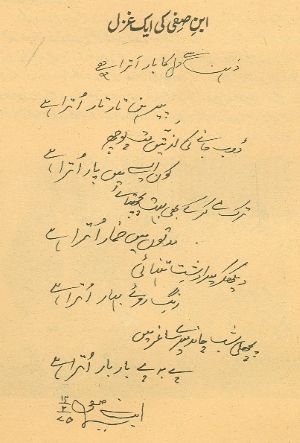 ابنِ صفی کی ایک غزل
ذہن سے دل کا بار اُترا ہے
پیرہن تار تار اُترا ہے
ڈوب جانے کی لذتیں مت پوچھ
کون ایسے میں پار اُترا ہے
ترکِ مے کر کے بھی بہت پچھتائے
مدتوں میں خمار اُترا ہے
دیکھ کر میرا دشتِ تنہائی
رنگِ روئے بہار اُترا ہے
پچھلی شب چاند میرے ساغر میں
پے بہ پے بار بار اُترا ہے
ابنِ صفی